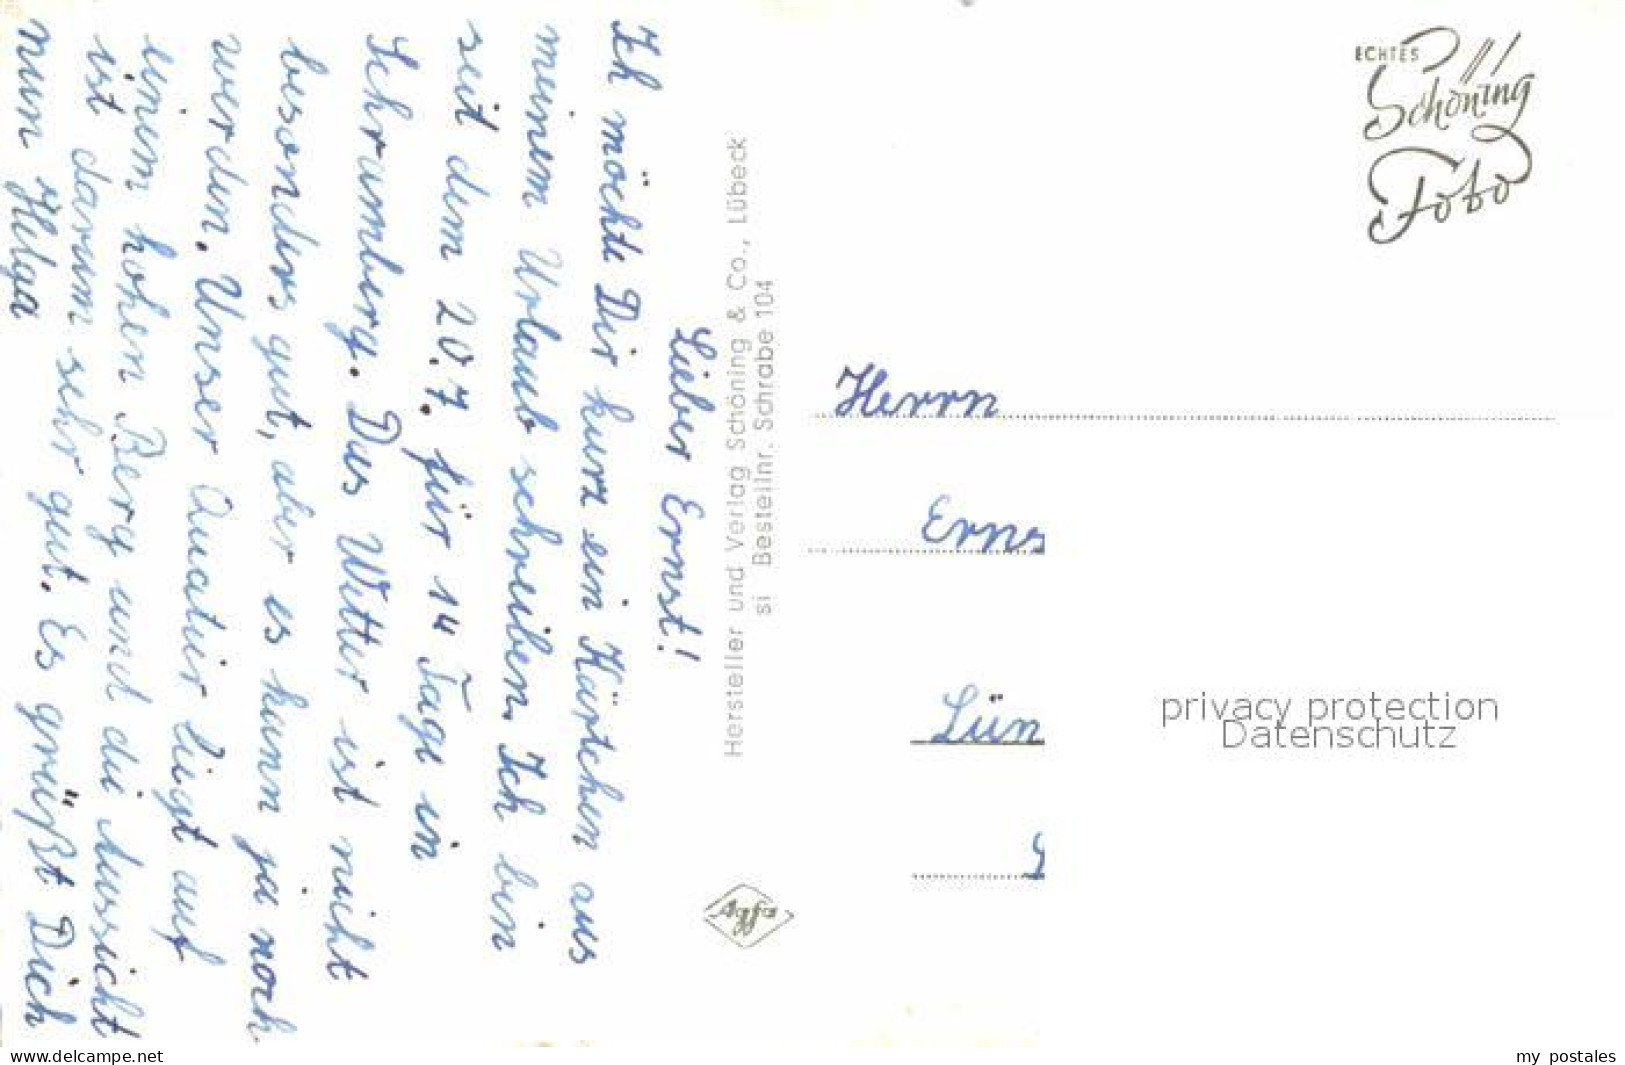 Lieber Ernst!
Ich möchte Dir kurz ein Kärtchen aus
meinem Urlaub schreiben. Ich bin
seit dem 20.7. für 14 Tage in
Schramberg. Das Wetter ist nicht
besonders gut, aber es kann ja noch
werden. Unser Quatier liegt auf
einem hohen Berg und die Aussicht
ist darum sehr gut. Es grüßt Dich
nun Helga
Hersteller und Verlag Schöning & Co., Lübeck
si Bestellnr. Schrabe 104
Agfa
ECHTES
Schöning
Foto
Herrn
Erns
Lün
privacy protection
Datenschutz
www.delcampe.net
my postales